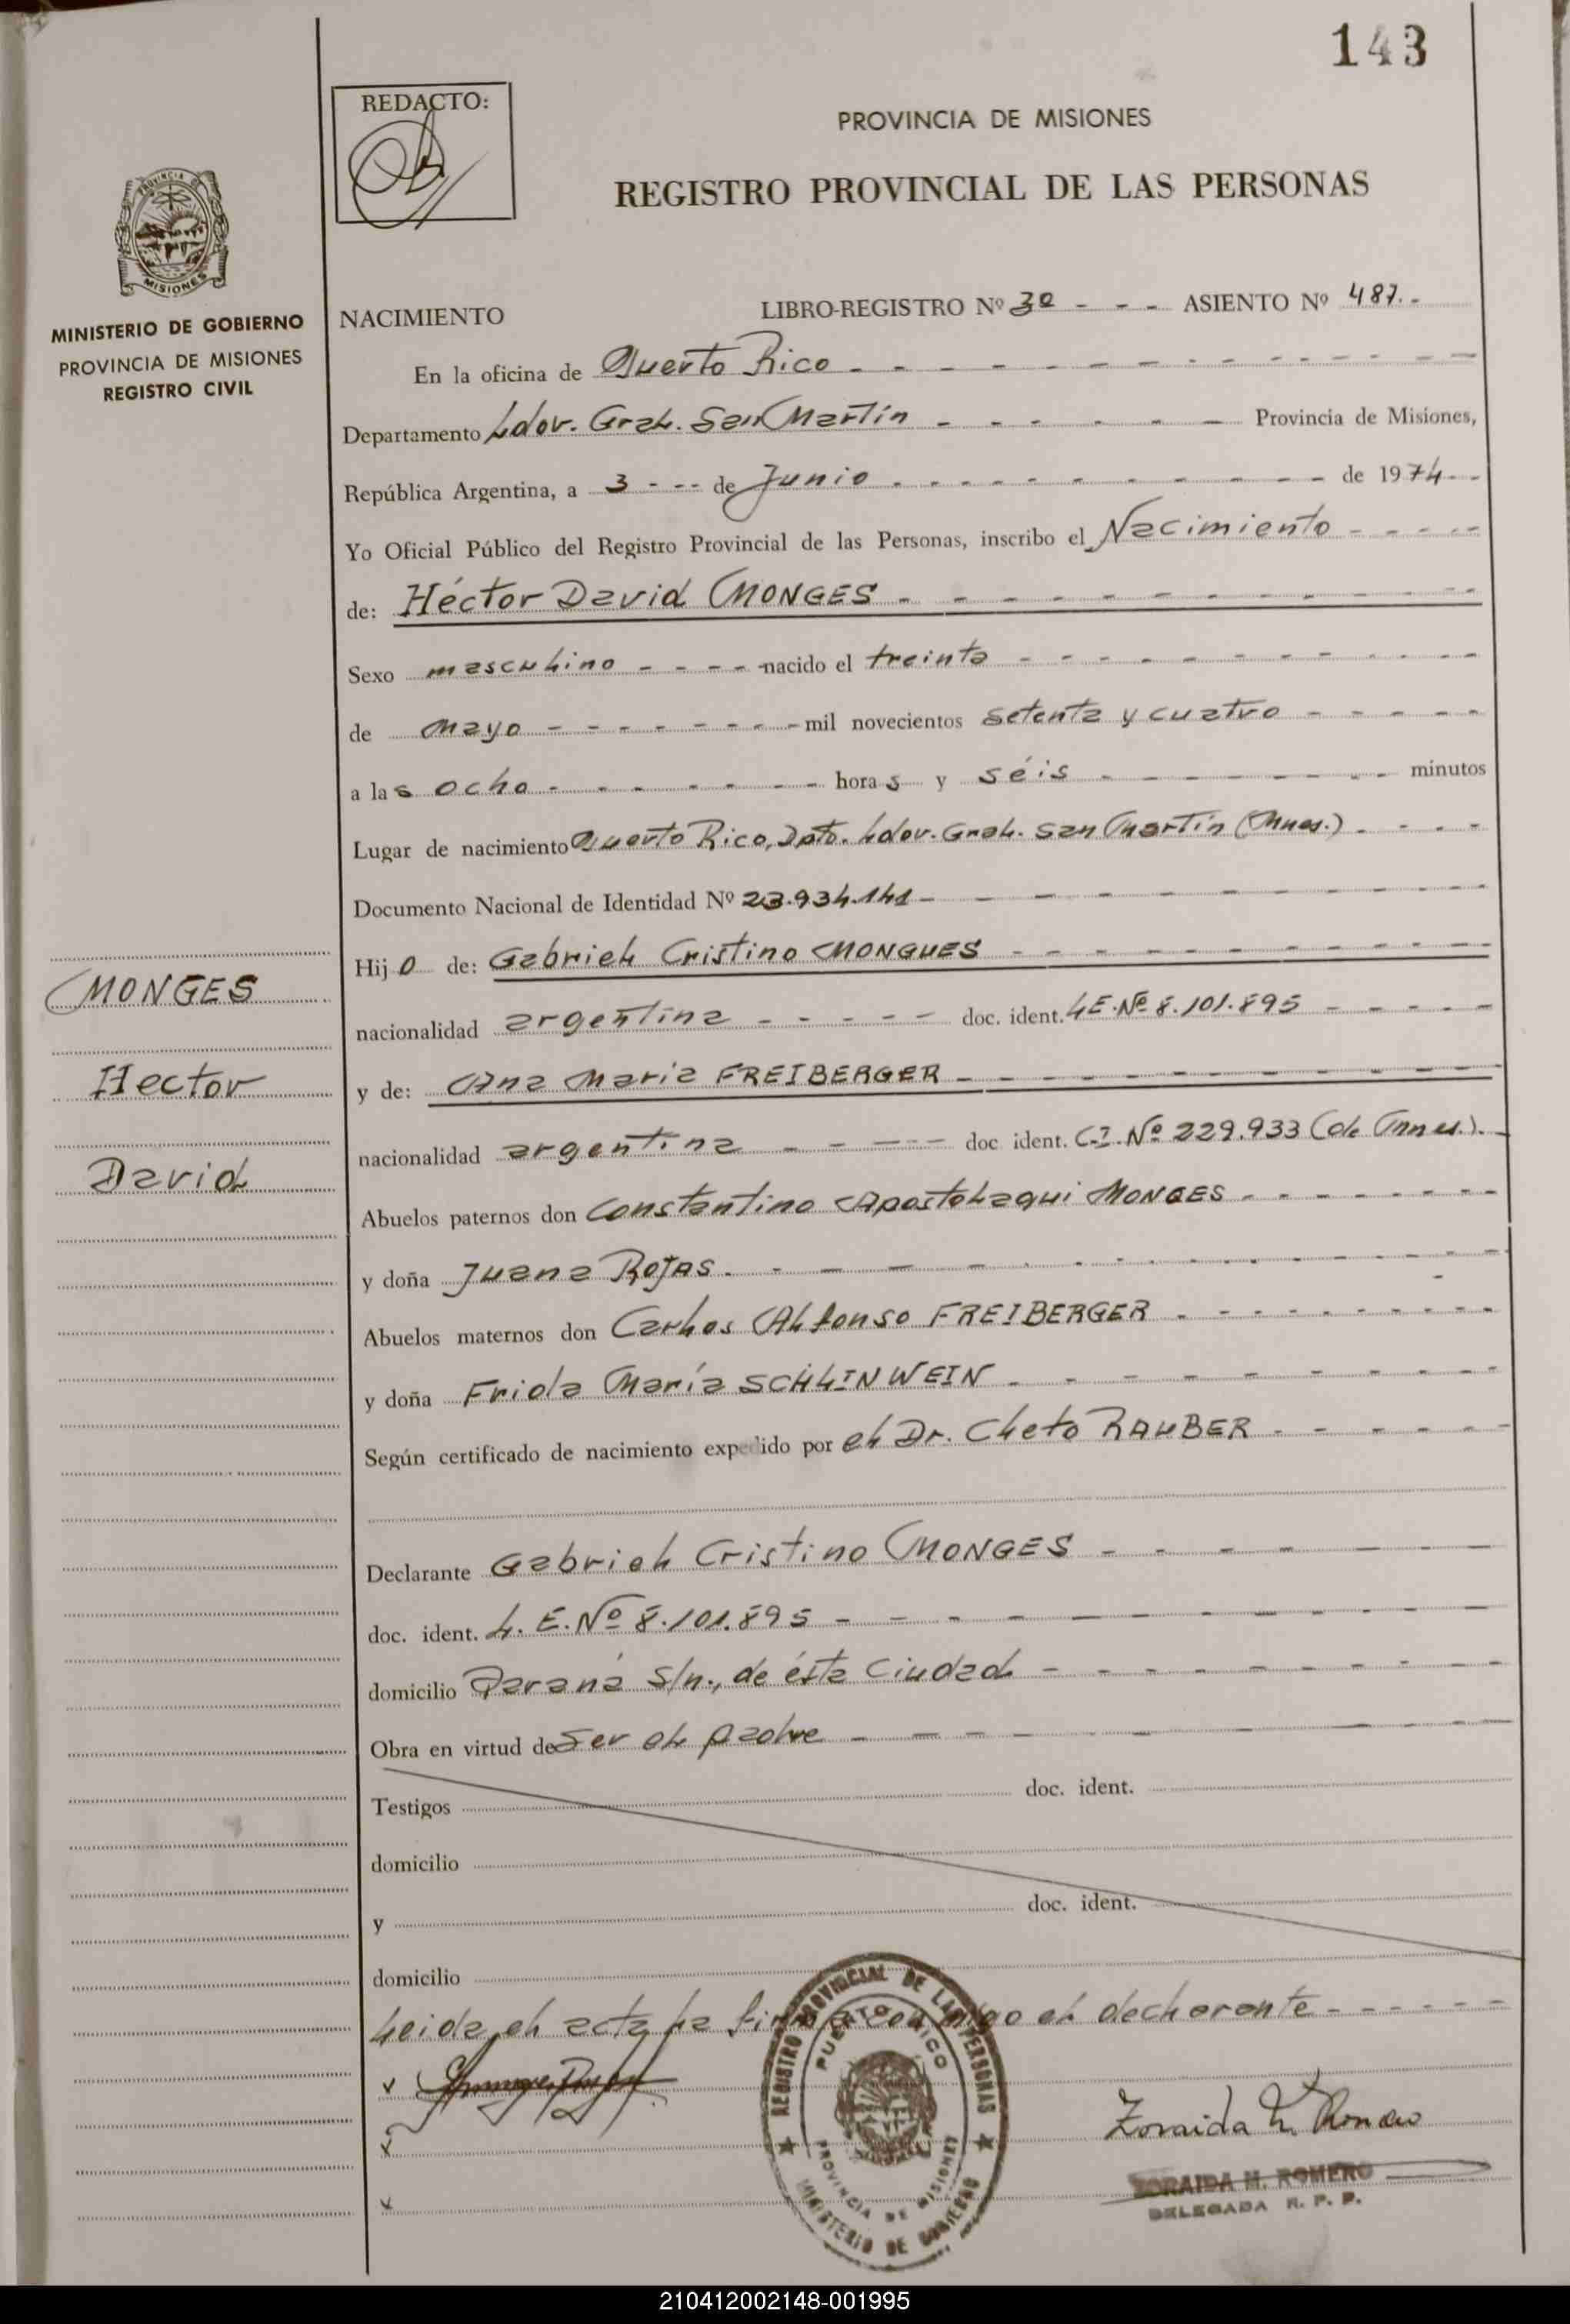 143
REDACTO:
PROVINCIA DE MISIONES
REGISTRO PROVINCIAL DE LAS PERSONAS
PROVINCIA DE
MISIONES
MINISTERIO DE GOBIERNO
PROVINCIA DE MISIONES
REGISTRO CIVIL
NACIMIENTO LIBRO-REGISTRO Nº 30 - - - ASIENTO Nº 487.-
En la oficina de Puerto Rico
Departamento Ldor. Gral. San Martín Provincia de Misiones,
República Argentina, a 3 --- de Junio de 1974.-
Yo Oficial Público del Registro Provincial de las Personas, inscribo el Nacimiento
de: Héctor David MONGES
Sexo masculino nacido el treinta
de mayo mil novecientos setenta y cuatro
a las ocho horas y séis minutos
Lugar de nacimiento Puerto Rico, Dpto. Ldor. Gral. San Martín (Mnes.)
Documento Nacional de Identidad Nº 23.934.141
Hijo de: Gabriel Cristino MONGUES
nacionalidad argentina doc. ident. LE.Nº 8.101.895
y de: Ana Maria FREIBERGER
nacionalidad argentina doc ident. C.I. Nº 229.933 (de Mnes.).
Abuelos paternos don Constantino Apostolaqui MONGES
y doña Juana ROJAS
Abuelos maternos don Carlos Alfonso FREIBERGER
y doña Frida María SCHLINWEIN
Según certificado de nacimiento expedido por el Dr. Cleto RAUBER
Declarante Gabriel Cristino MONGES
doc. ident. L.E.Nº 8.101.895
domicilio Paraná s/n., de ésta Ciudad
Obra en virtud de ser el padre
Testigos doc. ident.
domicilio
y doc. ident.
domicilio
Leida el acta la firma conmigo el declarante
MONGES
Hector
David
REGISTRO PROVINCIAL DE LAS PERSONAS
PUERTO RICO
PROVINCIA DE MISIONES
MINISTERIO DE GOBIERNO
Zoraida M. Romero
ZORAIDA M. ROMERO
DELEGADA R. P. P.
210412002148-001995